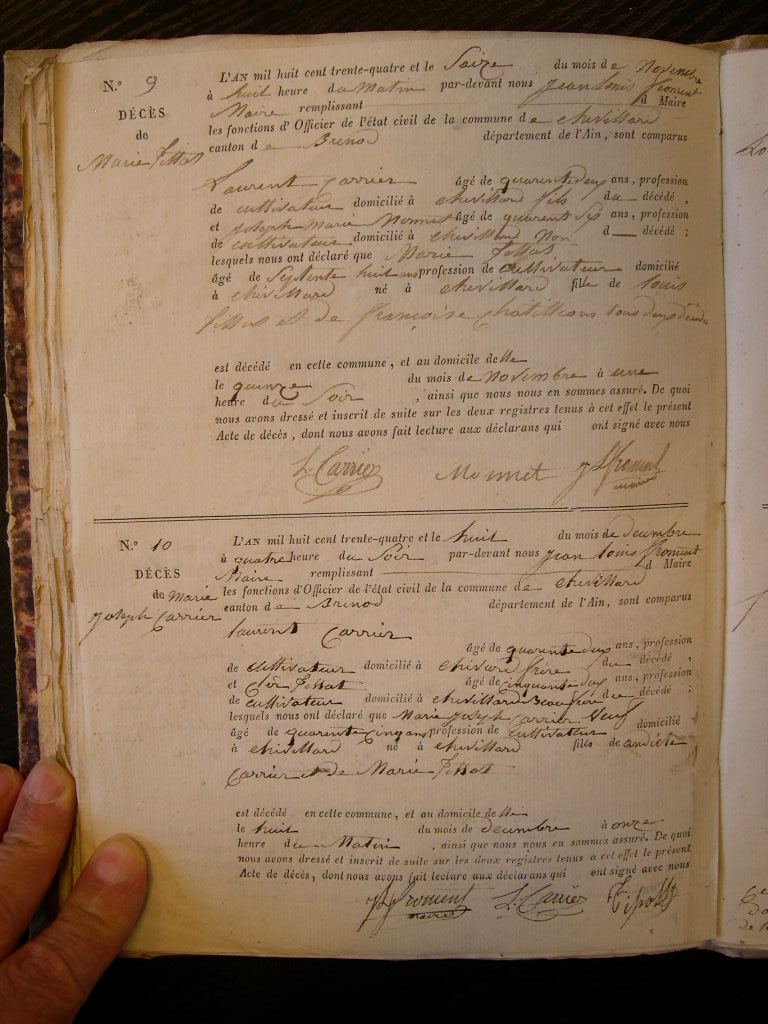 N.° 9
DÉCÈS
de
Marie Tissot
L'AN mil huit cent trente-quatre et le Saize du mois de Novembre
à huit heure du Matin par-devant nous Jean Louis Froment
Maire remplissant d Maire
les fonctions d'Officier de l'état civil de la commune de chevillard
canton de Brenod département de l'Ain, sont comparus
Laurent Carrier âgé de quarente deux ans, profession
de cultivateur domicilié à chevillard fils du décédé,
et Joseph Marie Monnet âgé de quarent six ans, profession
de cultivateur domicilié à chevillard Non d décédé ;
lesquels nous ont déclaré que Marie Tissot
âgé de Septente huit ans profession de cultivateur domicilié
à chevillard né à chevillard fille de Louis
Tissot et de françoise chatillions tous deux
est décédé en cette commune, et au domicile de lle
le quinze du mois de Novembre à une
heure du Soir, ainsi que nous nous en sommes assuré. De quoi
nous avons dressé et inscrit de suite sur les deux registres tenus à cet effet le présent
Acte de décès, dont nous avons fait lecture aux déclarans qui ont signé avec nous
L. Carrier Monnet J L Froment
maire
N.° 10
DÉCÈS
de Marie
Joseph Carrier
L'AN mil huit cent trente-quatre et le huit du mois de decembre
à quatre heure du Soir par-devant nous Jean Louis Froment
Maire remplissant d Maire
les fonctions d'Officier de l'état civil de la commune de chevillard
canton de Brenod département de l'Ain, sont comparus
laurent Carrier
âgé de quarente deux ans, profession
de cultivateur domicilié à chevillard frère du décédé,
et Tissot âgé de cinquante deux ans, profession
de cultivateur domicilié à chevillard Beau frère du décédé ;
lesquels nous ont déclaré que Marie Joseph Carrier
âgé de quarente cinq ans profession de cultivateur domicilié
à chevillard né à chevillard fils de
Carrier et de Marie Tissot
est décédé en cette commune, et au domicile de lle
le huit du mois de decembre à onze
heure du Matin, ainsi que nous nous en sommes assuré. De quoi
nous avons dressé et inscrit de suite sur les deux registres tenus à cet effet le présent
Acte de décès, dont nous avons fait lecture aux déclarans qui ont signé avec nous
J L Froment L. Carrier Tissot
maire